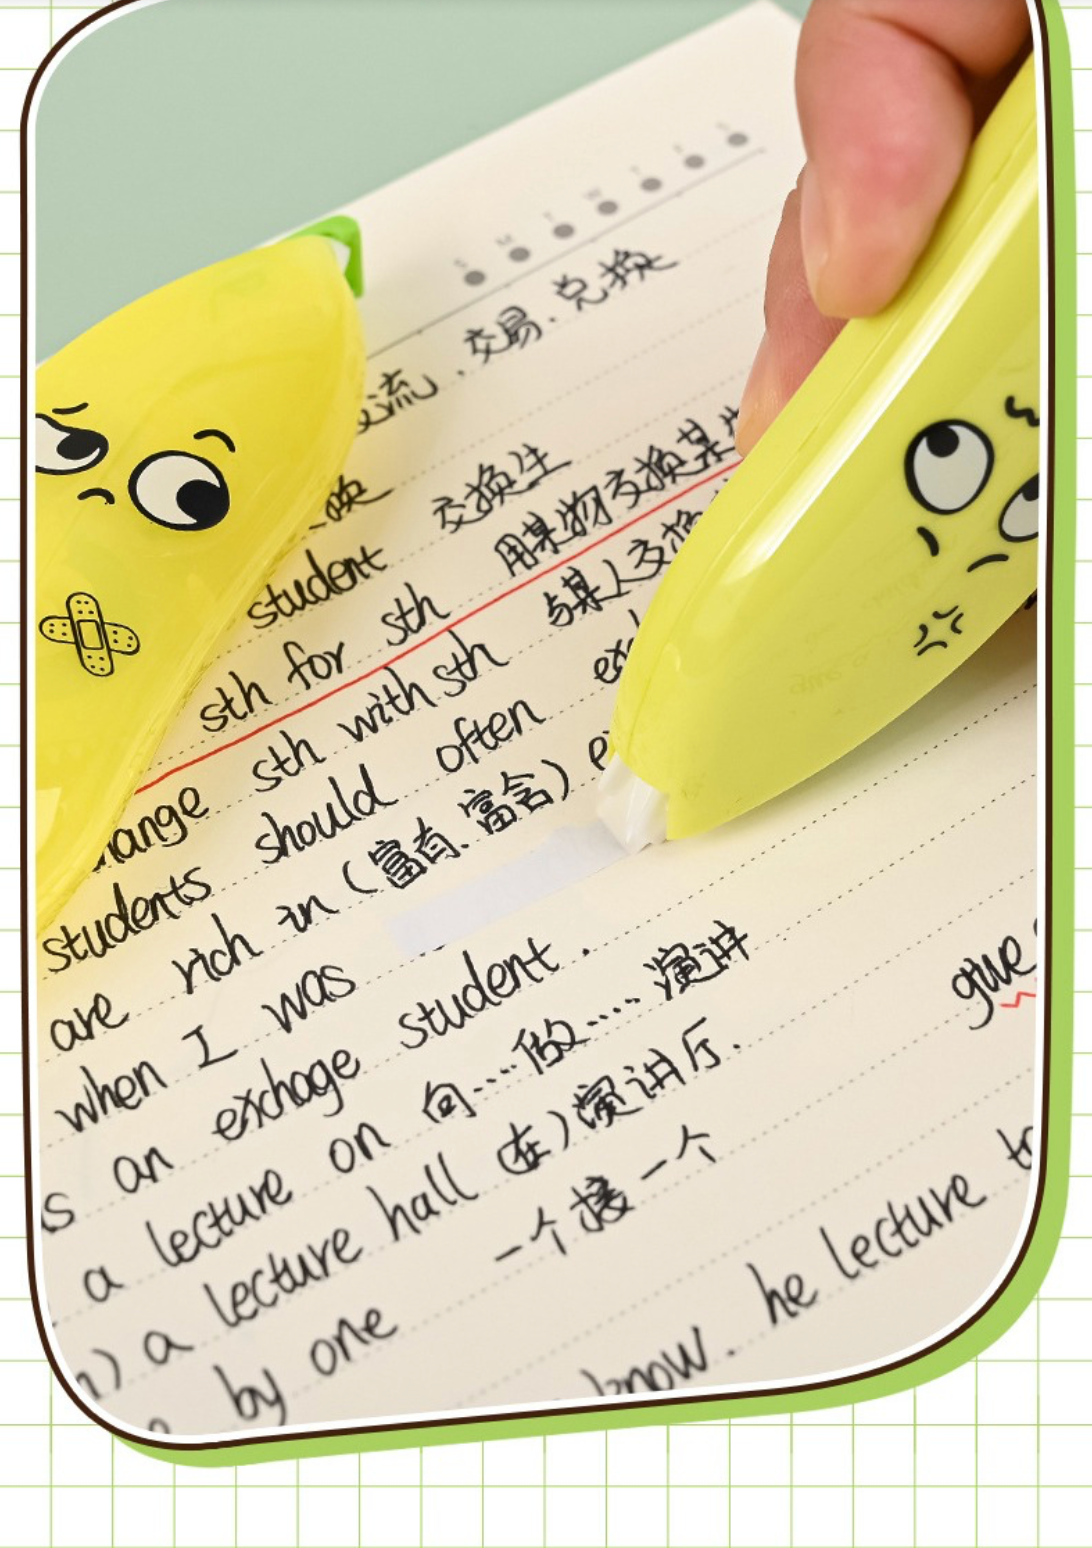 S M T W T F S
交流，交易．兑换
换
student 交换生
sth for sth 用某物交换某
sth with sth 与某人交换
students should often
are rich in (富有、富含)
when I was
an exchage student.
a lecture on 向....做.... 演讲
a lecture hall (在)演讲厅.
by one 一个接一个
give
know. he lecture